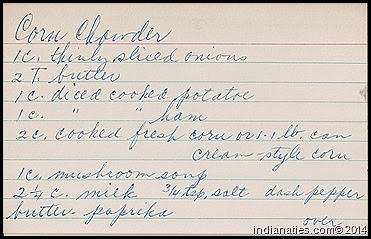 Corn Chowder
1 c. thinly sliced onions
2 T. butter
1 c. diced cooked potatoe
1 c. " " ham
2 c. cooked fresh corn or 1-1 lb. can
cream-style corn
1 c. mushroom soup
2 1/2 c. milk 3/4 tsp. salt dash pepper
butter - paprika
over
indianaties.com©2014